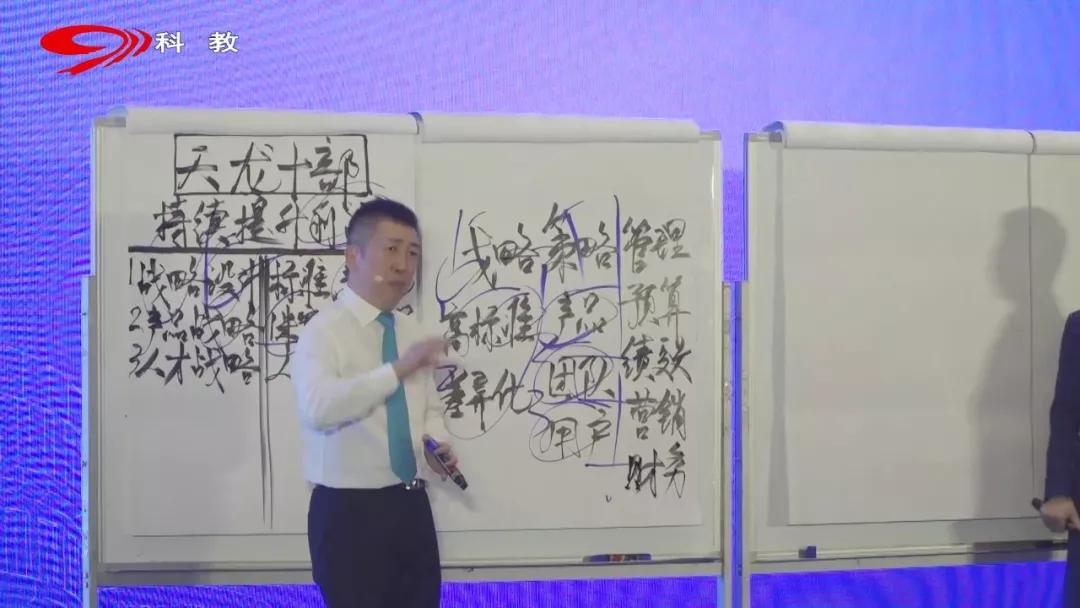 科教
天龙十部
持续提升利
1战略设计 标准
2产品战略
3人才战略 人
战略 策略 管理
高标准 产品 预算
差异化 团队 绩效
用户 营销
财务